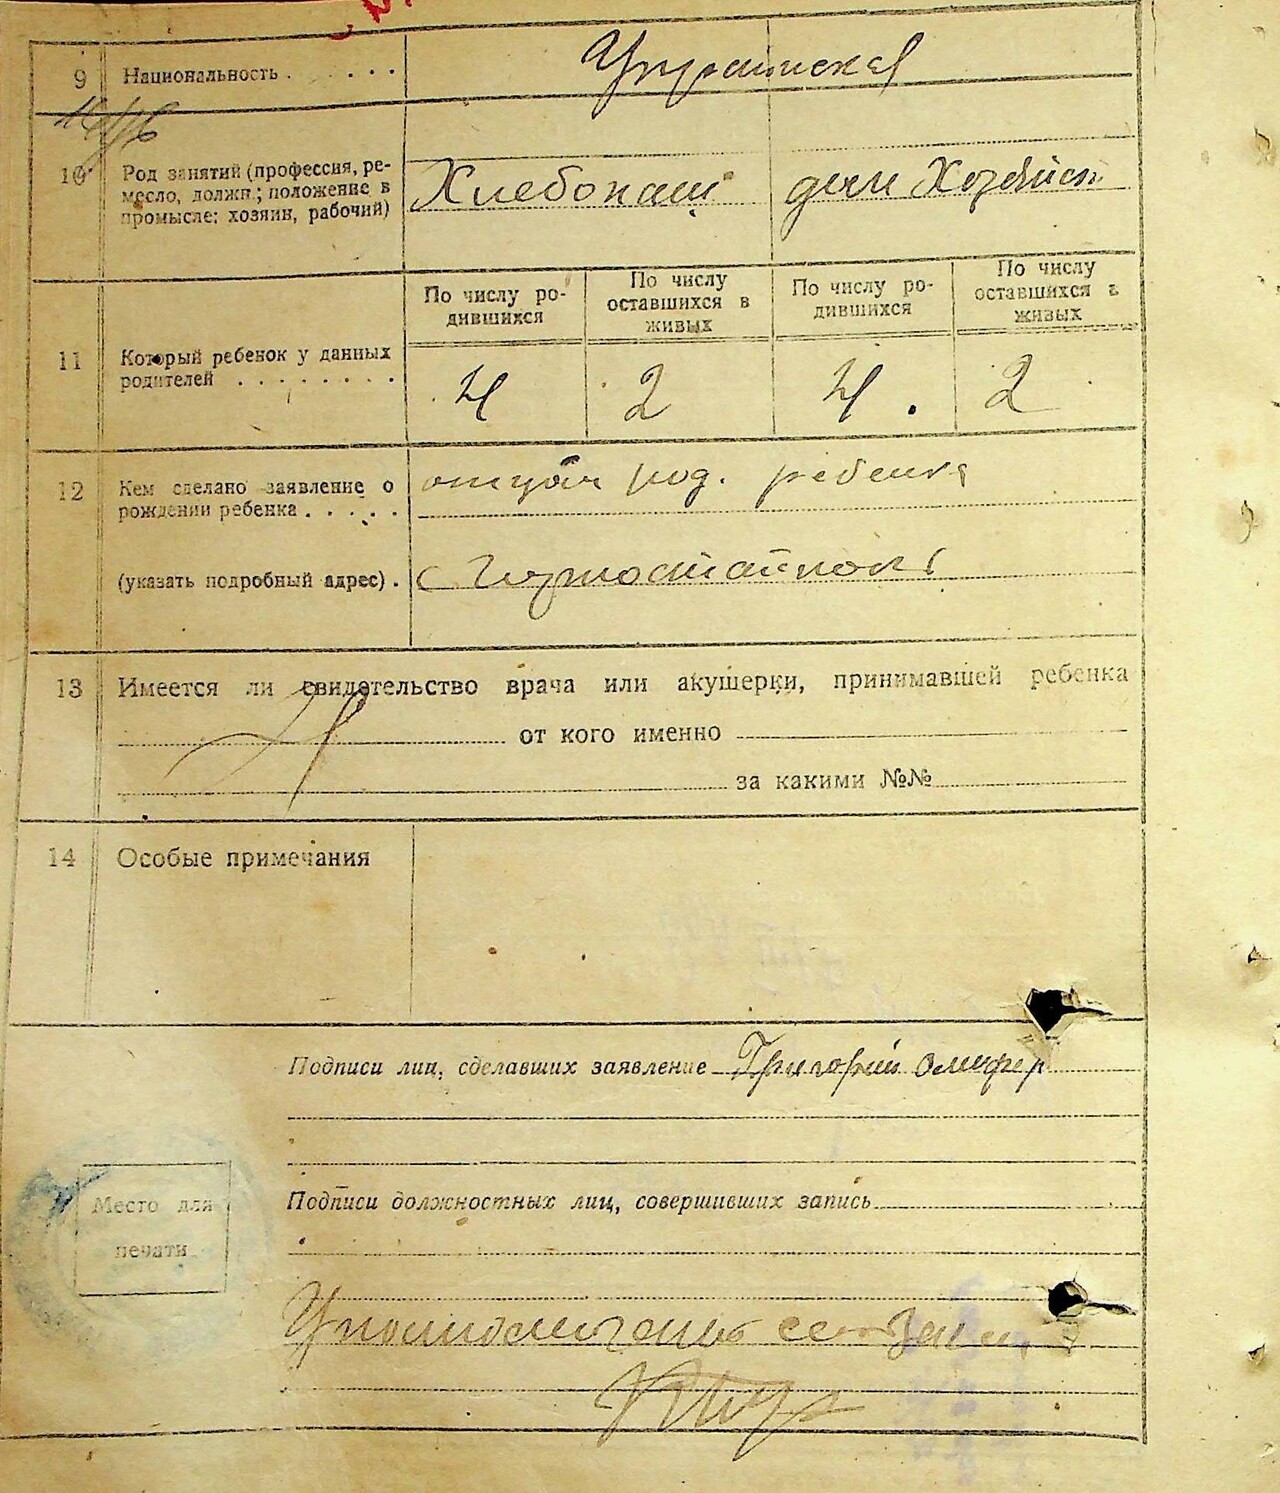 9 Национальность . . . . . . Украинская
10 Род занятий (профессия, ре-
месло, должн.; положение в
промысле: хозяин, рабочий)
Хлебопаш дом Хозяйст
По числу ро-
дившихся
По числу
оставшихся в
живых
По числу ро-
дившихся
По числу
оставшихся в
живых
11 Который ребенок у данных
родителей . . . . . . . .
4 2 4. 2
12 Кем сделано заявление о
рождении ребенка . . . . .
отцом род. ребенка
(указать подробный адрес) .
с
13 Имеется ли свидетельство врача или акушерки, принимавшей ребенка
от кого именно
за какими №№
14 Особые примечания
Подписи лиц, сделавших заявление Григорий Олифер
Подписи должностных лиц, совершивших запись
Место для
печати